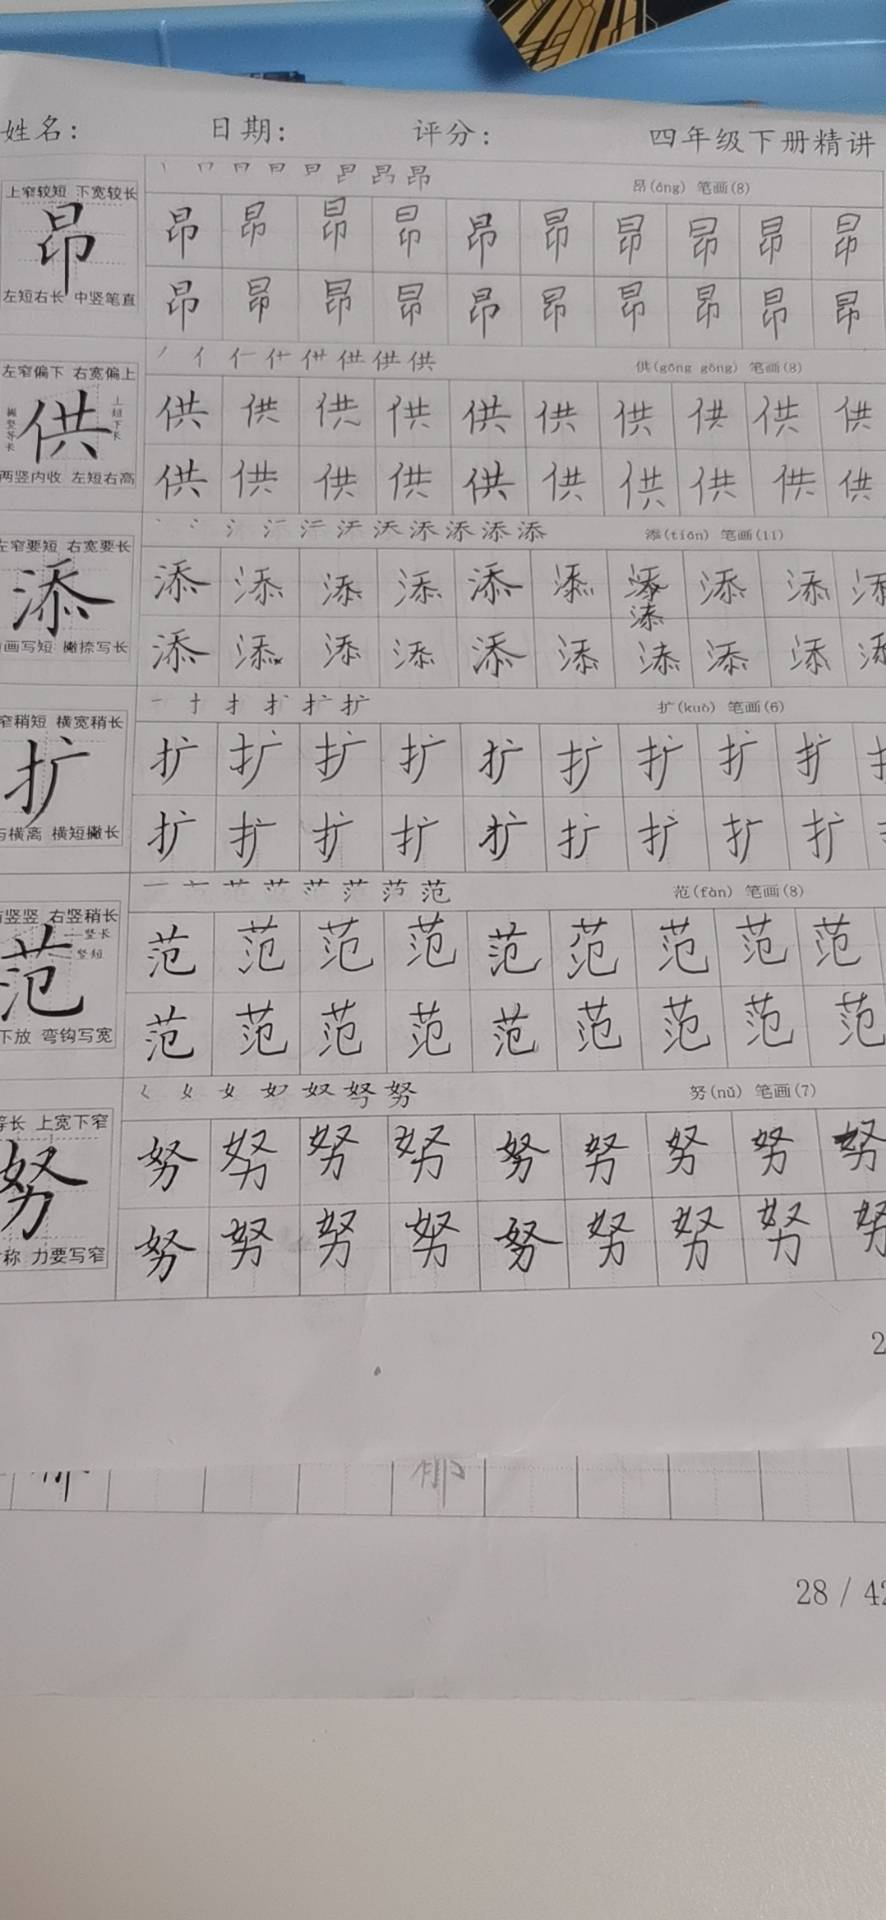 姓名： 日期： 评分： 四年级下册精讲
昂(áng) 笔画(8)
上窄较短 下宽较长
昂
左短右长 中竖笔直
昂 昂 昂 昂 昂 昂 昂 昂 昂 昂
昂 昂 昂 昂 昂 昂 昂 昂 昂 昂
供(gōng gòng) 笔画(8)
左窄偏下 右宽偏上
撇竖等长 供 上短下长
两竖内收 左短右高
供 供 供 供 供 供 供 供 供 供
供 供 供 供 供 供 供 供 供 供
添(tiān) 笔画(11)
左窄要短 右宽要长
添
画写短 撇捺写长
添 添 添 添 添 添 添 添 添 添
添
添 添 添 添 添 添 添 添 添 添
扩(kuò) 笔画(6)
窄稍短 横宽稍长
扩
与横离 横短撇长
扩 扩 扩 扩 扩 扩 扩 扩 扩
扩 扩 扩 扩 扩 扩 扩 扩 扩
范(fàn) 笔画(8)
竖竖 右竖稍长
竖长
竖短
范
下放 弯钩写宽
范 范 范 范 范 范 范 范 范
范 范 范 范 范 范 范 范 范
努(nǔ) 笔画(7)
等长 上宽下窄
努
称 力要写窄
努 努 努 努 努 努 努 努 努
努 努 努 努 努 努 努 努 努
2
28 / 42